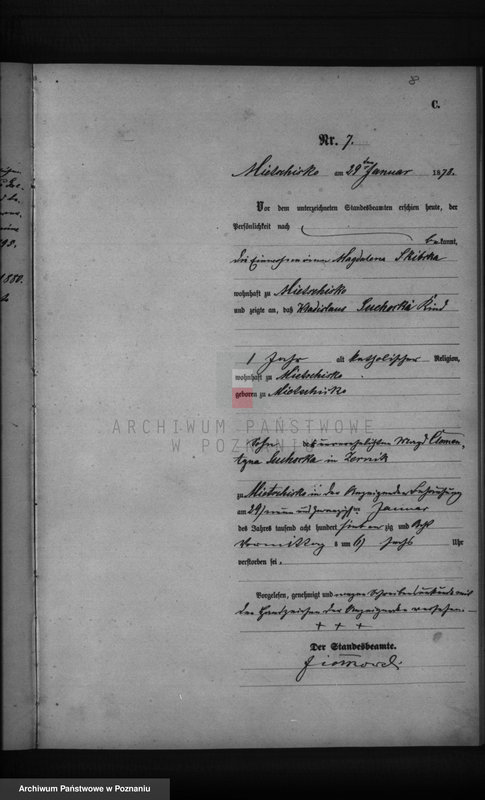 8
C.
Nr. 7.
Mietschisko am 29ten Januar 1878.
Vor dem unterzeichneten Standesbeamten erschien heute, der
Persönlichkeit nach
bekannt,
die Einwohnerinn Magdalena Skibska
wohnhaft zu Mietschisko
und zeigte an, daß Wladislaus Suchorka Kind
1 Jahr alt katholischer Religion,
wohnhaft zu Mietschisko
geboren zu Mietschisko
ARCHIWUM PAŃSTWOWE
W POZNANIU
Sohn der unverehelichten Magd Clemen-
tyna Suchorka in Zernik
zu Mietschisko in der Anzeigenden Behausung
am 29/ neun und zwanzigsten Januar
des Jahres tausend acht hundert siebenzig und Acht
Vormittag s um 6/ sechs Uhr
verstorben sei.
Vorgelesen, genehmigt und wegen Schreibensunkunde mit
den Handzeichen der Anzeigenden versehen.
+ + +
Der Standesbeamte.
1880.
Archiwum Państwowe w Poznaniu